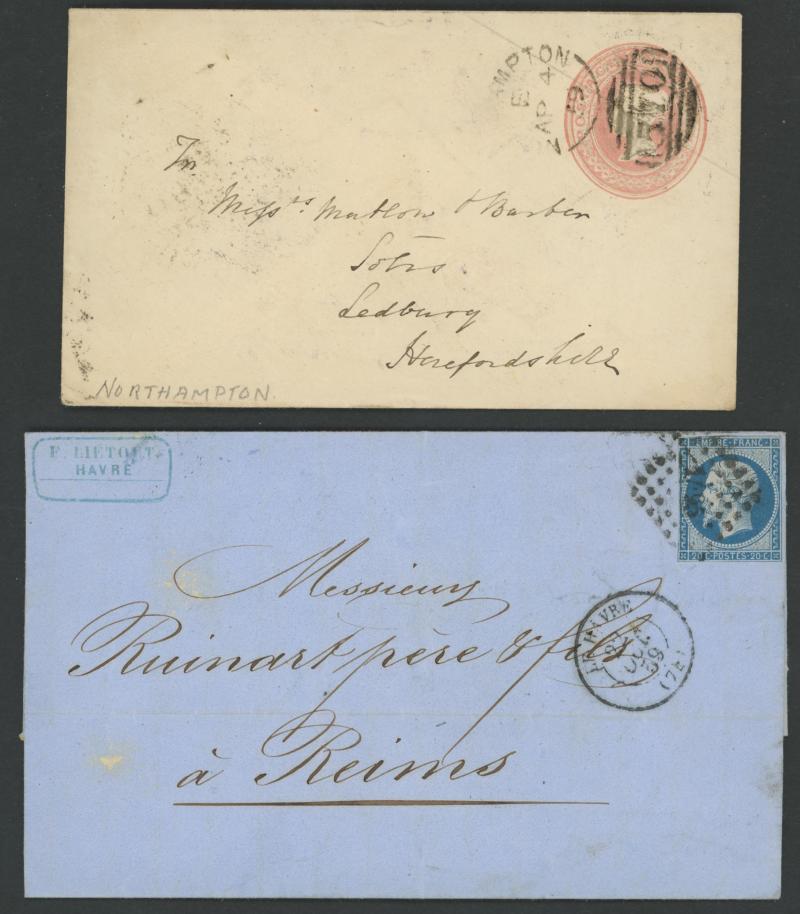 AMPTON
AP 4
To
Mess.rs Matlow & Barber
Solrs
Ledbury
Herefordshire
NORTHAMPTON.
F. LIETOUT
HAVRE
EMPIRE·FRANC·
20·C·POSTES·20·C·
Messieurs
Ruinart père & fils
à Reims
LE HAVRE
59
(74)